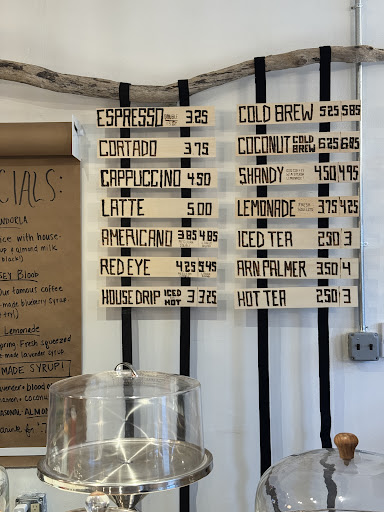 CIALS:
ice with house-
+ almond milk
black)
SEY BLOOD
Our famous coffee
-made blueberry syrup.
Lemonade
Fresh squeezed
-made lavender syrup.
MADE SYRUP!
ESPRESSO 3.25
CORTADO 3.75
CAPPUCCINO 4.50
LATTE 5.00
AMERICANO 3.85 4.85
RED EYE 4.25 5.45
HOUSE DRIP ICED HOT 3 3.25
COLD BREW 5.25 5.85
COCONUT COLD BREW 6.25 6.85
SHANDY 4.50 4.95
LEMONADE 3.75 4.25
ICED TEA 2.50 3
ARN PALMER 3.50 4
HOT TEA 2.50 3